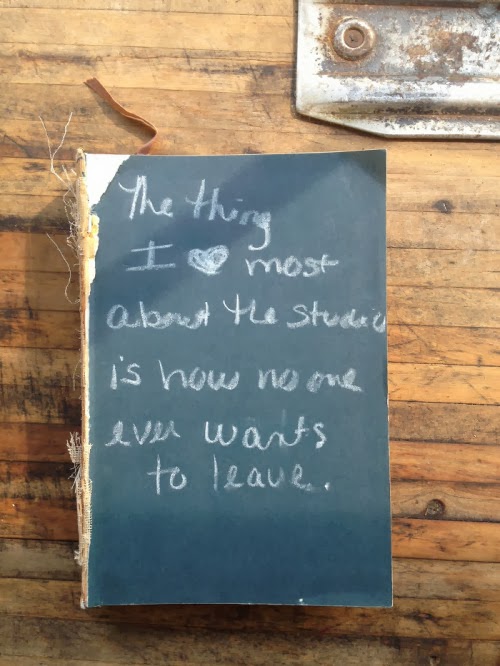 The thing
I ♥ most
about the studio
is how no one
ever wants
to leave.